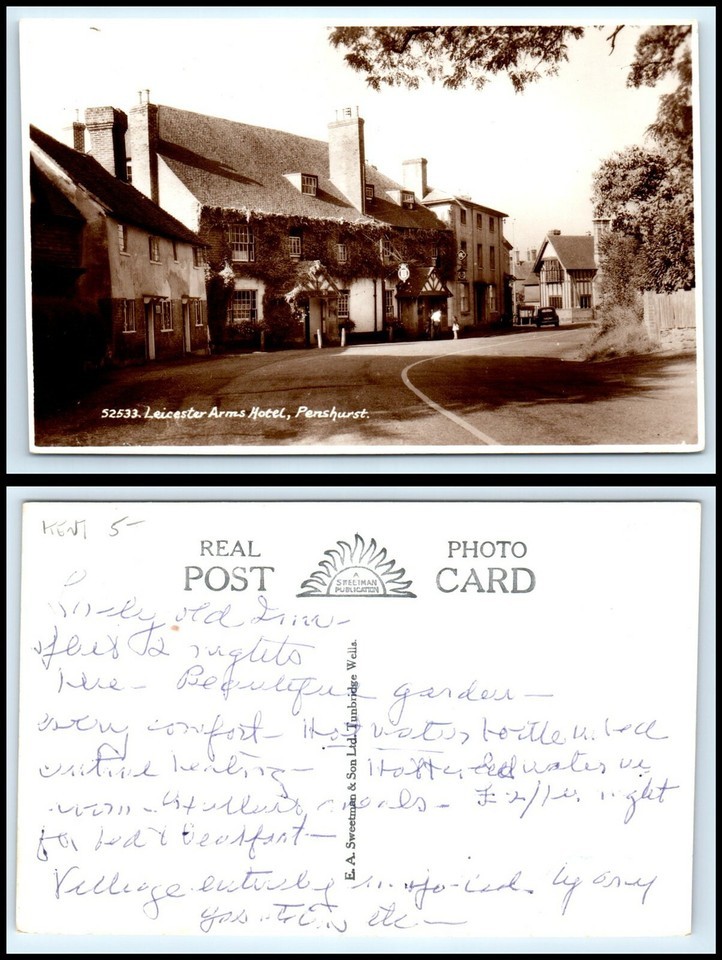 52533. Leicester Arms Hotel, Penshurst.
KENT 5-
REAL PHOTO
POST CARD
A
SWEETMAN
PUBLICATION
E. A. Sweetman & Son Ltd. Tunbridge Wells.
Lovely old Inn -
2 nights
here - Beautiful garden -
every comfort - Hot water bottle in bed
central heating - Hot & cold water in
room - meals - £2/ night
for bed & breakfast -
Village entirely by any
etc -